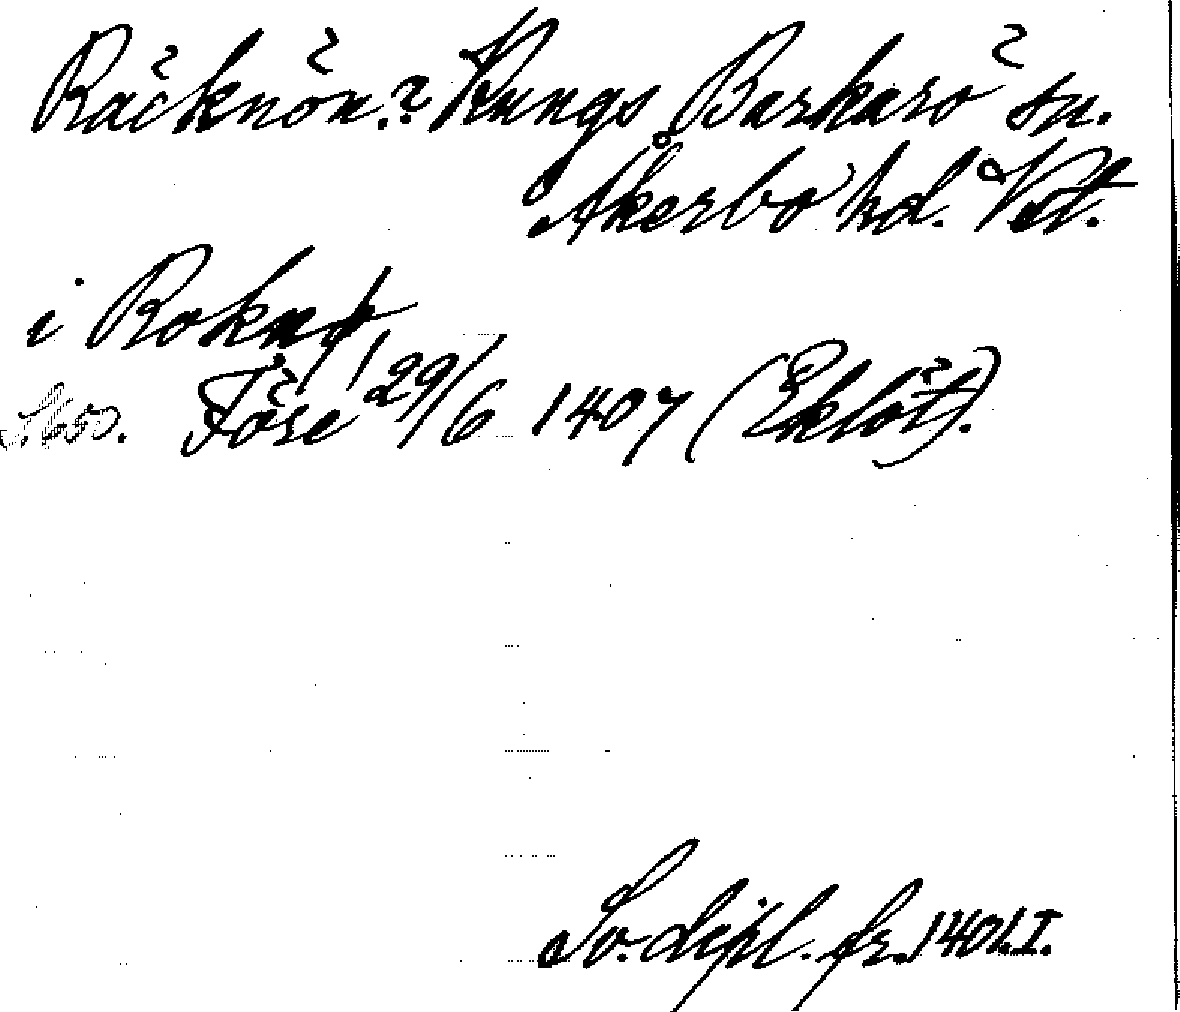 Räcknön? Kungs Barkarö sn.
Åkerbo hd. Vstm.
i Roknø
S. 650. Före 29/6 1407 (Eklöf).
Sv. dipl. fr. 1401. I.